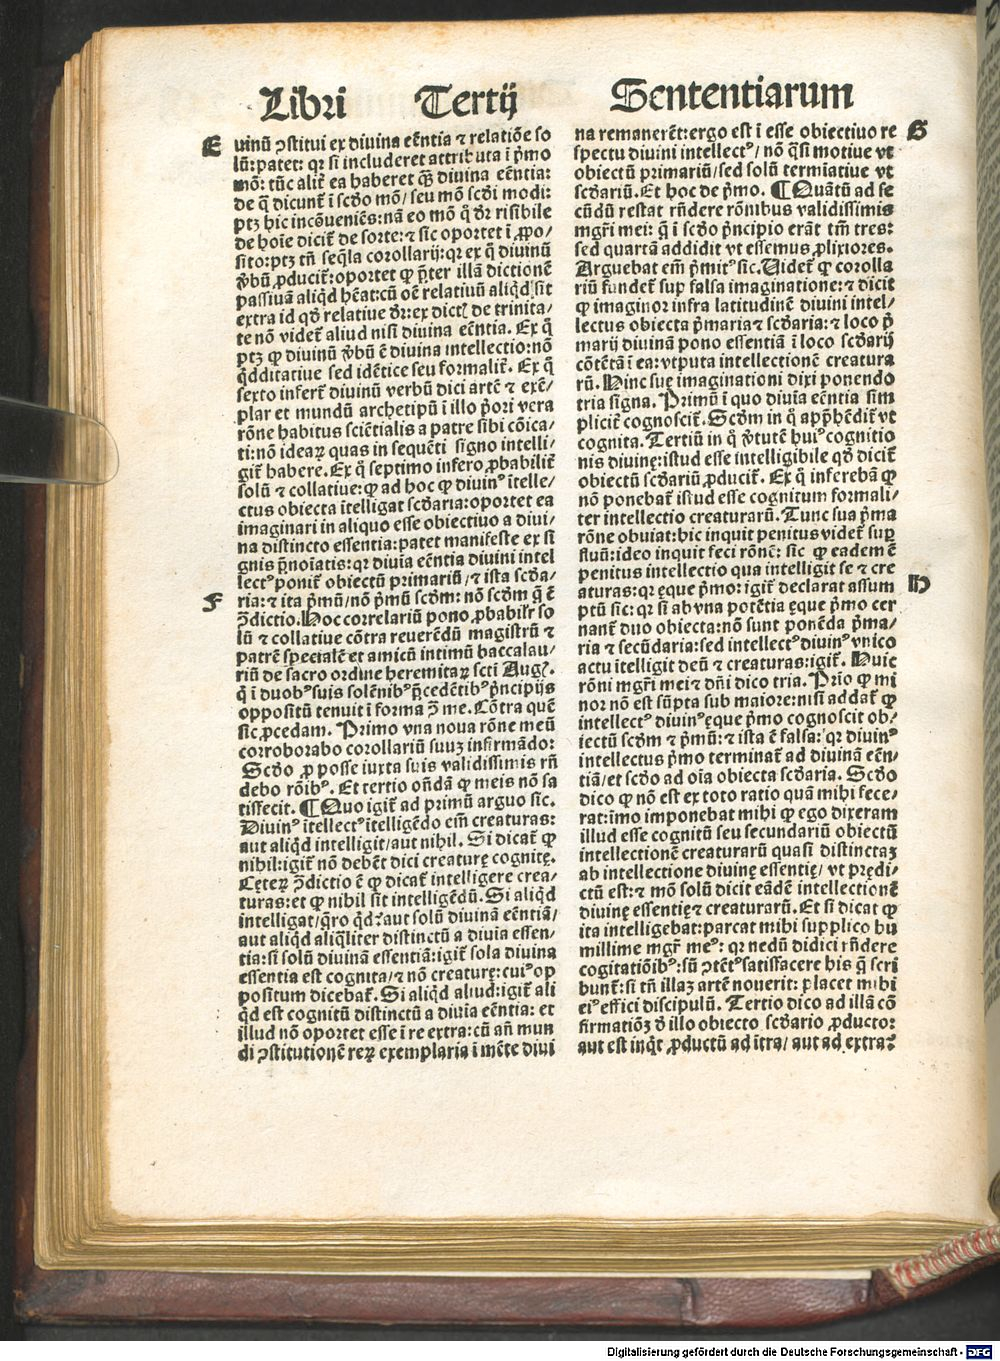 Libri Tertij Sententiarum
E
uinũ ꝯstitui ex diuina eẽntia ⁊ relatiõe so
lũ: patet: qꝛ si includeret attributa ĩ p̃mo
mõ: tũc alit̃ ea haberet q̃ʒ diuina eẽntia:
de q̃ dicunt̃ ĩ scđo mõ/ seu mõ scđi modi:
ptʒ hic incõueniẽs: nã eo mõ q̃ dr̃ risibile
de hoĩe dicit̃ de sorte: ⁊ sic oportet ĩ ꝓpo/
sito: ptʒ tñ seq̃la corollarij: qꝛ ex q̃ diuinũ
v̄bũ ꝓducit̃: oportet ꝙ p̃ter illã dictionẽ
passiuã aliqđ hẽat: cũ oẽ relatiuũ aliqđ sit
extra id qđ relatiue dr̃: ex dictꝭ de trinita/
te nõ videt̃ aliud nisi diuina eẽntia. Ex q̃
ptʒ ꝙ diuinũ v̄bũ ẽ diuina intellectio: nõ
q̃dditatiue sed idẽtice seu formalit̃. Ex q̃
sexto infert̃ diuinũ verbũ dici artẽ ⁊ exẽ/
plar et mundũ archetipũ ĩ illo p̃ori vera
rõne habitus sciẽtialis a patre sibi cõica/
ti: nõ ideaꝝ quas in sequẽti signo intelli/
git̃ habere. Ex q̃ septimo infero ꝓbabilit̃
solũ ⁊ collatiue: ꝙ ad hoc ꝙ diuinꝰ ĩtelle/
ctus obiecta ĩtelligat scđaria: oportet ea
imaginari in aliquo esse obiectiuo a diui/
na distincto essentia: patet manifeste ex si
gnis p̃noĩatis: qꝛ diuĩa eẽntia diuini intel
lectꝰ ponit̃ obiectũ primariũ/ ⁊ ista scđa/
F
ria: ⁊ ita p̃mũ/ nõ p̃mũ scđm: nõ scđm q̃ ẽ
ꝯ̃dictio. Hoc correlariũ pono ꝓbabilr̃ so
lũ ⁊ collatiue cõtra reuerẽdũ magistrũ ⁊
patrẽ specialẽ et amicũ intimũ baccalau/
riũ de sacro ordine heremitaꝝ scti Augꝭ.
q̃ ĩ duobꝰ suis solẽnibꝰ p̃cedẽtibꝰ p̃ncipijs
oppositũ tenuit ĩ forma ꝯ̃ me. Cõtra quẽ
sic ꝓcedam. Primo vna noua rõne meũ
corroborabo corollariũ suuʒ infirmãdo:
Scđo ꝓ posse iuxta suis validissimis rñ
debo rõibꝰ. Et tertio oñdã ꝙ meis nõ sa
tiffecit. ¶ Quo igit̃ ad primũ arguo sic.
Diuinꝰ ĩtellectꝰ ĩtelligẽdo em̃ creaturas:
aut aliqđ intelligit/ aut nihil. Si dicat̃ ꝙ
nihil: igit̃ nõ debẽt dici creaturę cognitę.
Cęteꝝ ꝯ̃dictio ẽ ꝙ dicat̃ intelligere crea/
turas: et ꝙ nihil sit intelligẽdũ. Si aliqđ
intelligat/ q̃ro q̃d? aut solũ diuinã eẽntiã/
aut aliqđ aliq̃liter distinctũ a diuĩa essen/
tia: si solũ diuinã essentiã: igit̃ sola diuina
essentia est cognita/ ⁊ nõ creaturę: cuiꝰ op
positum dicebat̃. Si aliqđ aliud: igit̃ ali
q̃d est cognitũ distinctũ a diuĩa eẽntia: et
illud nõ oportet esse ĩ re extra: cũ añ mun
di ꝯstitutionẽ reꝝ exemplaria ĩ mẽte diui
G
na remanerẽt: ergo est ĩ esse obiectiuo re
spectu diuini intellectꝰ/ nõ q̃si motiue vt
obiectũ primariũ/ sed solũ termĩatiue vt
scđariũ. Et hoc de p̃mo. ¶ Quãtũ ad se
cũdũ restat rñdere rõnibus validissimis
mgr̃i mei: q̃ ĩ scđo p̃ncipio erãt tm̃ tres:
sed quartã addidit vt essemus ꝓlixiores.
Arguebat em̃ p̃mitꝰ sic. Videt̃ ꝙ corolla
riũ fundet̃ sup falsa imaginatione: ⁊ dicit
ꝙ imaginor infra latitudinẽ diuini intel/
lectus obiecta p̃maria ⁊ scđaria: ⁊ loco p̃
marij diuinã pono essentiã ĩ loco scđarij
cõtẽtã ĩ ea: vtputa intellectionẽ creatura
rũ. Hinc suę imaginationi dixi ponendo
tria signa. Primũ ĩ quo diuĩa eẽntia sim
plicit̃ cognoscit̃. Scđm in q̃ app̃hẽdit̃ vt
cognita. Tertiũ in q̃ v̄tutẽ huiꝰ cognitio
nis diuinę: istud esse intelligibile qđ dicit̃
obiectũ scđariũ ꝓducit̃. Ex q̃ inferebã ꝙ
nõ ponebat̃ istud esse cognitum formali/
ter intellectio creaturarũ. Tunc sua p̃ma
rõne obuiat: hic inquit penitus videt̃ suꝑ
fluũ: ideo inquit feci rõnẽ: sic ꝙ eadem ẽ
penitus intellectio qua intelligit se ⁊ cre
H
aturas: qꝛ ęque p̃mo: igit̃ declarat assum
ptũ sic: qꝛ si ab vna potẽtia ęque p̃mo cer
nant̃ duo obiecta: nõ sunt ponẽda p̃ma/
ria ⁊ secũdaria: sed intellectꝰ diuinꝰ vnico
actu ĩtelligit deũ ⁊ creaturas: igit̃. Huic
rõni mgr̃i mei ⁊ dñi dico tria. Prio ꝙ mi
nor nõ est sũpta sub maiore: nisi addat̃ ꝙ
intellectꝰ diuinꝰ ęque p̃mo cognoscit ob/
iectũ scđm ⁊ p̃mũ: ⁊ ista ẽ falsa: qꝛ diuinꝰ
intellectus p̃mo terminat̃ ad diuinã eẽn/
tiã/ et scđo ad oĩa obiecta scđaria. Scđo
dico ꝙ nõ est ex toto ratio quã mihi fece/
rat: ĩmo imponebat mihi ꝙ ego dixeram
illud esse cognitũ seu secundariũ obiectũ
intellectionẽ creaturarũ quasi distinctaʒ
ab intellectione diuinę essentię/ vt prędi/
ctũ est: ⁊ mõ solũ dicit eãdẽ intellectionẽ
diuinę essentię ⁊ creaturarũ. Et si dicat ꝙ
ita intelligebat: parcat mihi supplico hu
millime mgr̃ meꝰ: qꝛ nedũ didici rñdere
cogitatiõibꝰ: sũ ꝯtẽtꝰ satiffacere his q̃ scri
bunt̃: si tñ illaʒ artẽ nouerit: placet mihi
eiꝰ effici discipulũ. Tertio dico ad illã cõ
firmatiõʒ đ illo obiecto scđario ꝓducto:
aut est inq̃t ꝓductũ ad ĩtra/ aut ad extra?
Digitalisierung gefördert durch die Deutsche Forschungsgemeinschaft - DFG